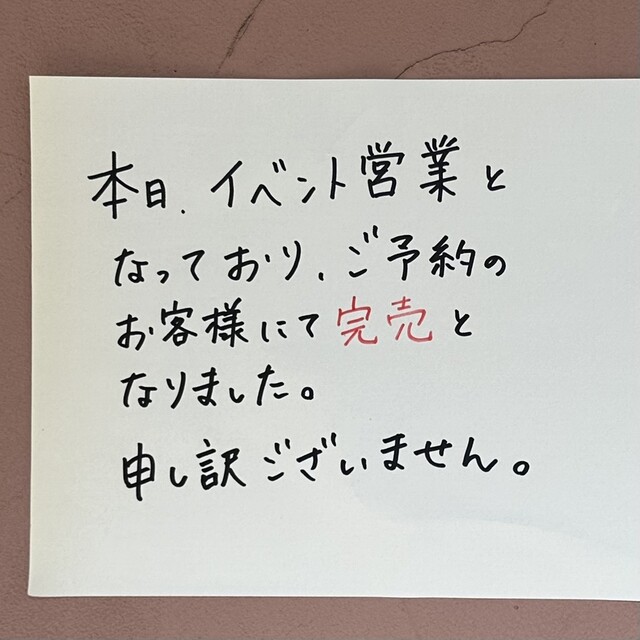 本日、イベント営業と
なっており、ご予約の
お客様にて完売と
なりました。
申し訳ございません。